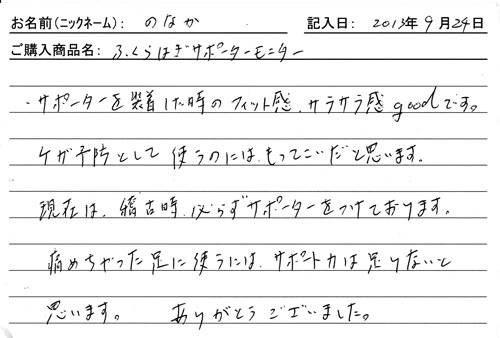 お名前(ニックネーム): のなか 記入日: 2013年9月24日
ご購入商品名: ふくらはぎサポーターモニター
・サポーターを装着した時のフィット感、サラサラ感goodです。
ケガ予防として使うのには、もってこいだと思います。
現在は、稽古時、必らずサポーターをつけております。
痛めちゃった足に使うには、サポート力は足りないと
思います。 ありがとうございました。